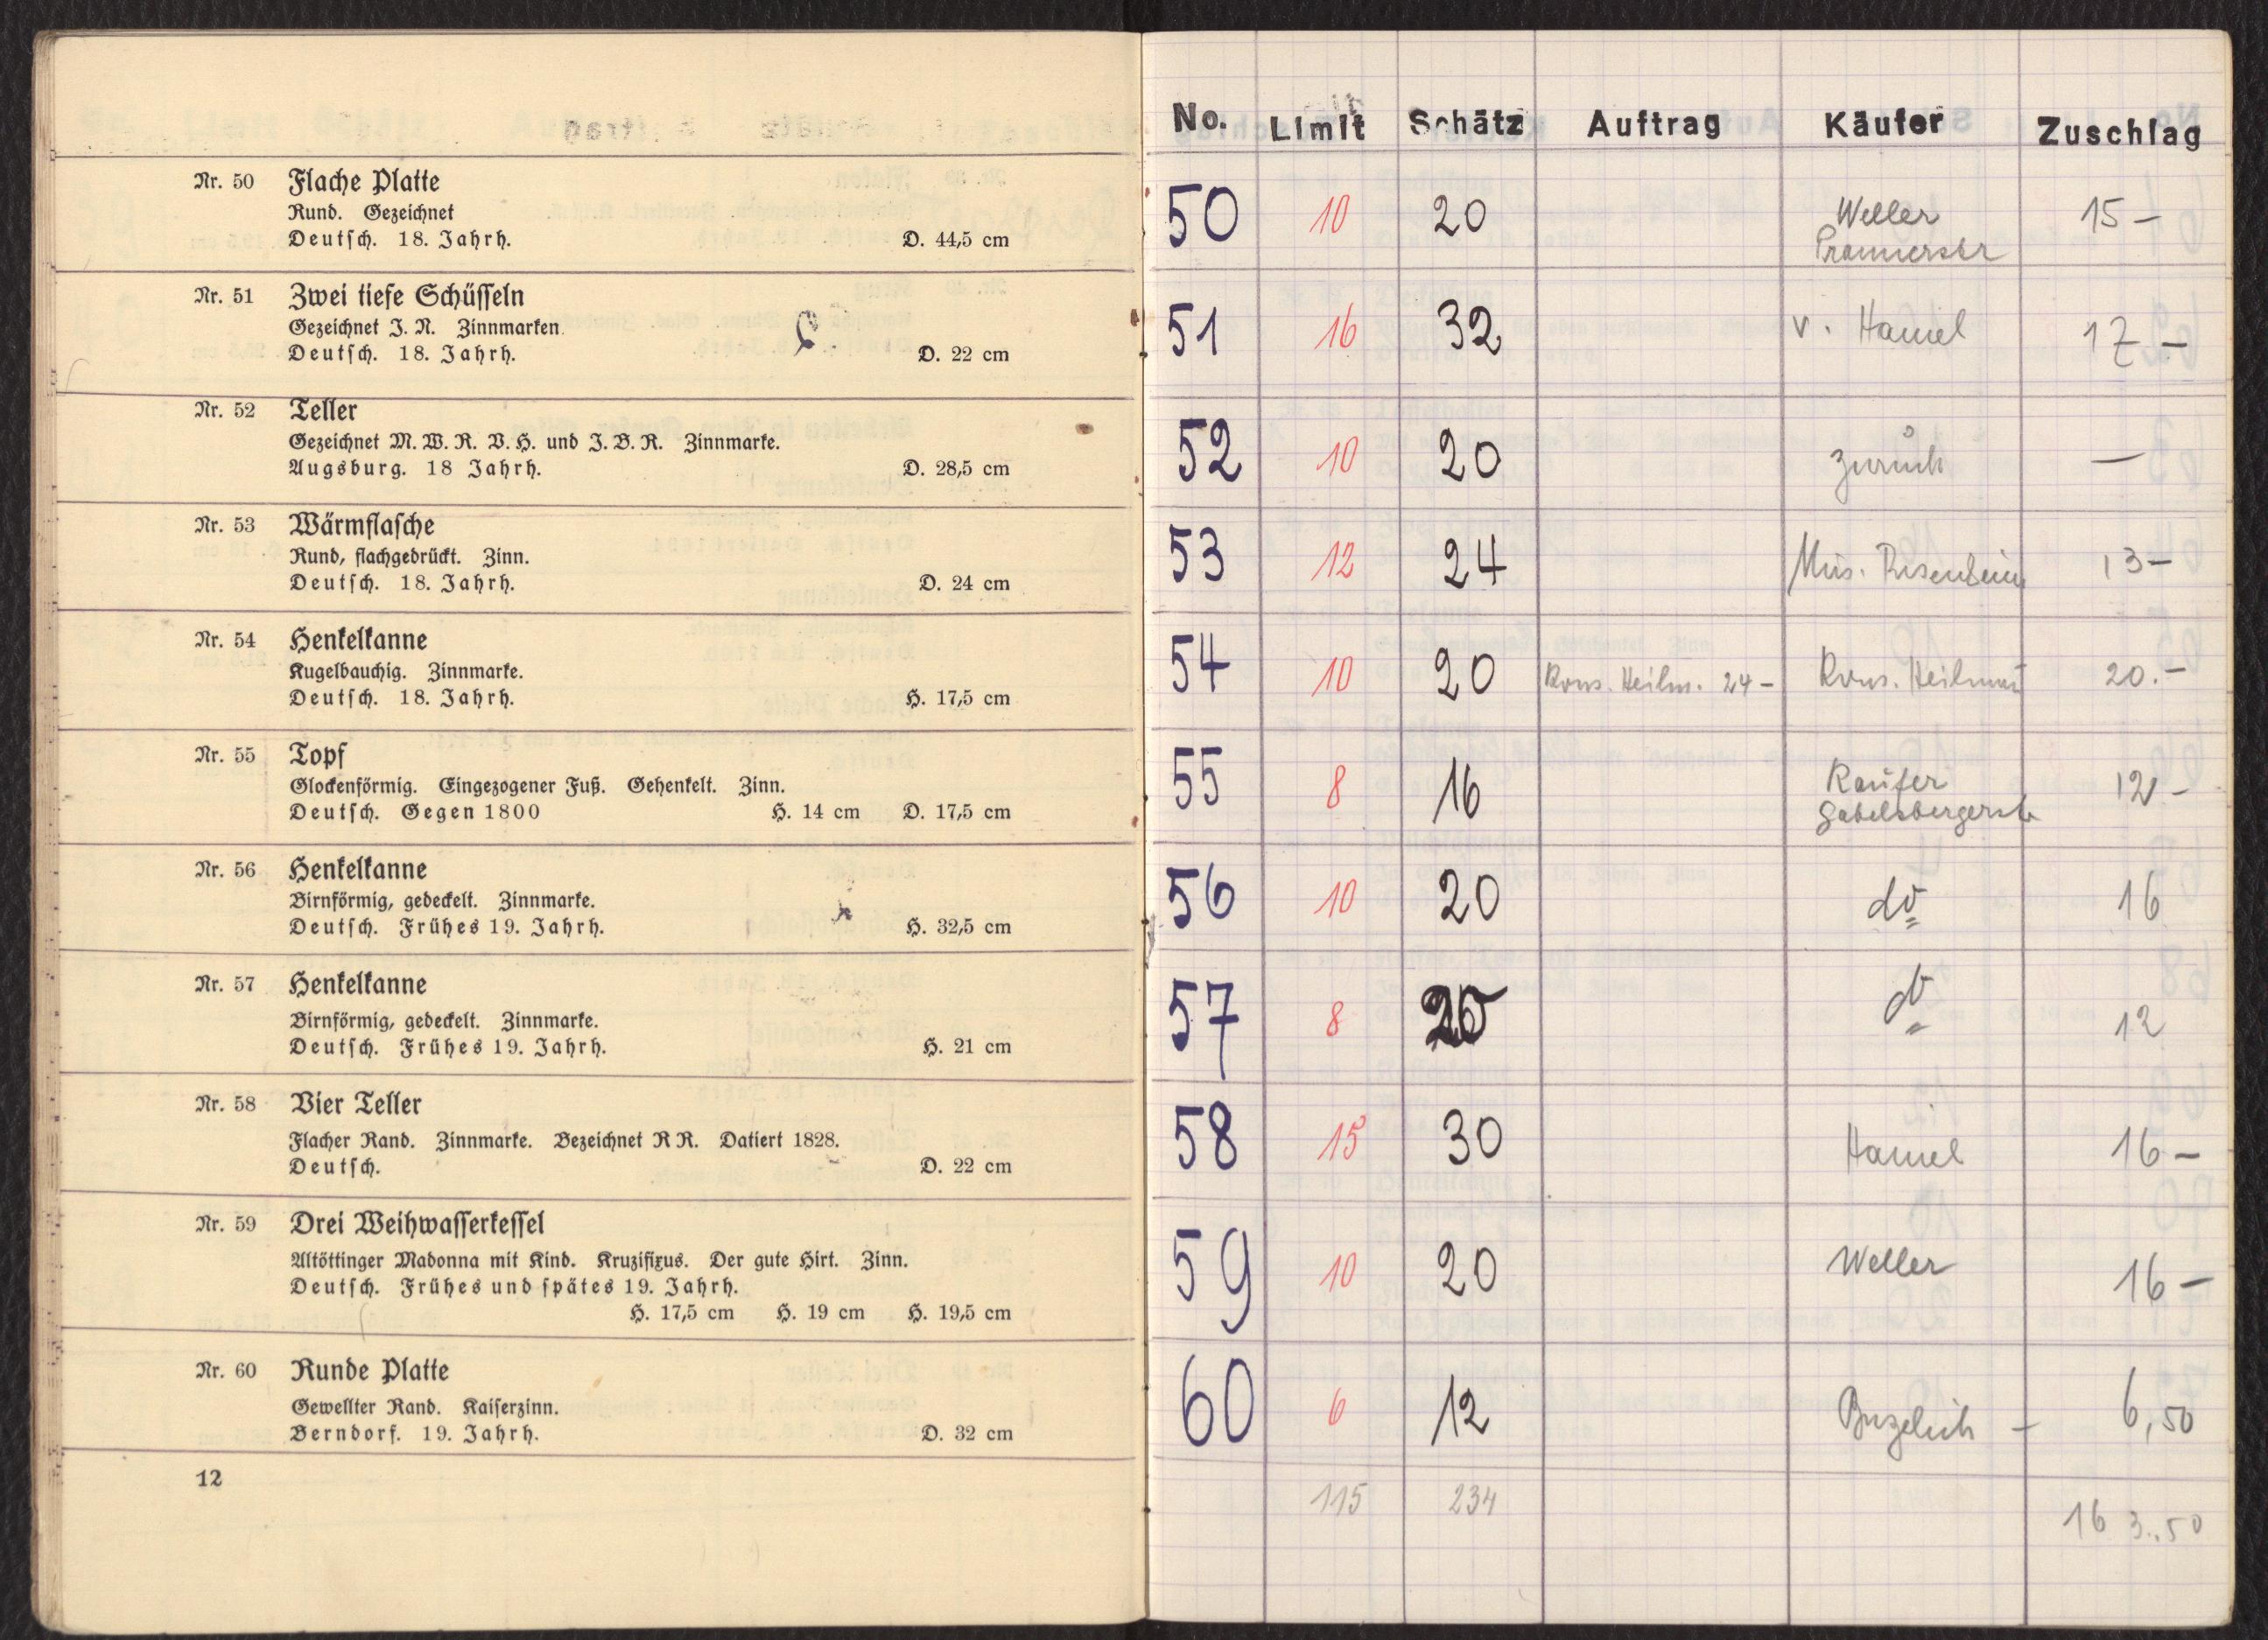 Nr. 50 Flache Platte
Rund. Gezeichnet
Deutsch. 18. Jahrh. D. 44,5 cm
Nr. 51 Zwei tiefe Schüsseln
Gezeichnet J. N. Zinnmarken
Deutsch. 18. Jahrh. D. 22 cm
Nr. 52 Teller
Gezeichnet M. W. R. V. H. und J. B. R. Zinnmarke.
Augsburg. 18 Jahrh. D. 28,5 cm
Nr. 53 Wärmflasche
Rund, flachgedrückt. Zinn.
Deutsch. 18. Jahrh. D. 24 cm
Nr. 54 Henkelkanne
Kugelbauchig. Zinnmarke.
Deutsch. 18. Jahrh. H. 17,5 cm
Nr. 55 Topf
Glockenförmig. Eingezogener Fuß. Gehenkelt. Zinn.
Deutsch. Gegen 1800 H. 14 cm D. 17,5 cm
Nr. 56 Henkelkanne
Birnförmig, gedeckelt. Zinnmarke.
Deutsch. Frühes 19. Jahrh. H. 32,5 cm
Nr. 57 Henkelkanne
Birnförmig, gedeckelt. Zinnmarke.
Deutsch. Frühes 19. Jahrh. H. 21 cm
Nr. 58 Vier Teller
Flacher Rand. Zinnmarke. Bezeichnet R R. Datiert 1828.
Deutsch. D. 22 cm
Nr. 59 Drei Weihwasserkessel
Altöttinger Madonna mit Kind. Kruzifixus. Der gute Hirt. Zinn.
Deutsch. Frühes und spätes 19. Jahrh.
H. 17,5 cm H. 19 cm H. 19,5 cm
Nr. 60 Runde Platte
Gewellter Rand. Kaiserzinn.
Berndorf. 19. Jahrh. D. 32 cm
12
No. Limit Schätz Auftrag Käufer Zuschlag
50 10 20 Weller 15 –
Prannerstr
51 16 32 v. Hamel 17 –
52 10 20 zurück —
53 12 24 Mus. Rosenheim 13 –
54 10 20 Kons. Heilm. 24 – Kons. 20. –
55 8 16 Käufer 12 –
Gabelsbergerstr
56 10 20 do 16
57 8 do 12
58 15 30 Hamel 16 –
59 10 20 Weller 16 –
60 6 12 – 6,50
115 234
163.50